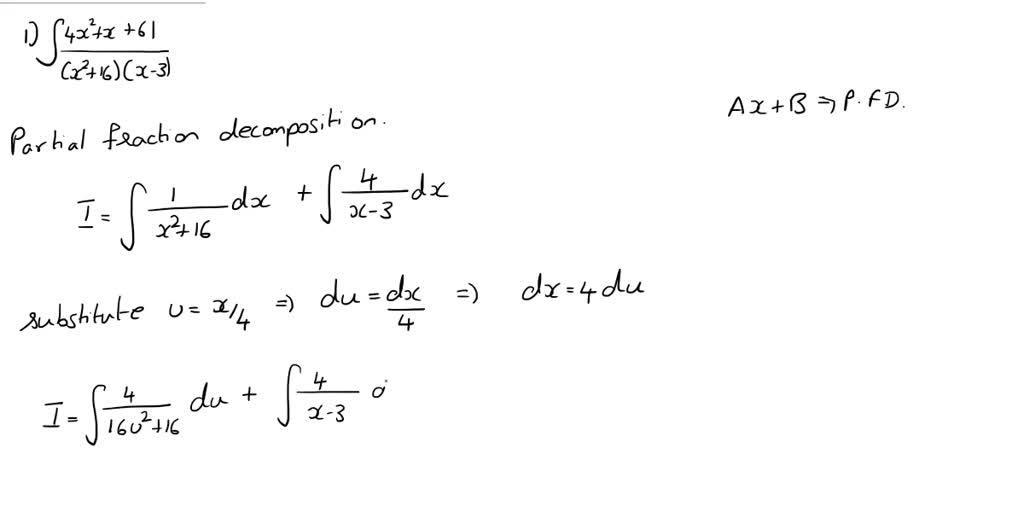 1) ∫ 4x²+x+61 / (x²+16)(x-3)
Ax+B ⇒ P.FD.
Partial fraction decomposition.
I = ∫ 1/(x²+16) dx + ∫ 4/(x-3) dx
substitute u = x/4 ⇒ du = dx/4 ⇒ dx = 4 du
I = ∫ 4/(16u²+16) du + ∫ 4/(x-3)